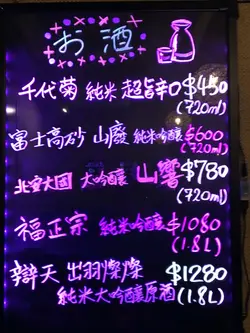 お酒
千代菊 純米 超旨辛口 $450
(720ml)
富士高砂 山廃 純米吟釀 $600
(720ml)
北雪大國 大吟釀 山響 $780
(720ml)
福正宗 純米吟釀 $1080
(1.8L)
辯天 出羽燦燦 $1280
純米大吟釀原酒 (1.8L)